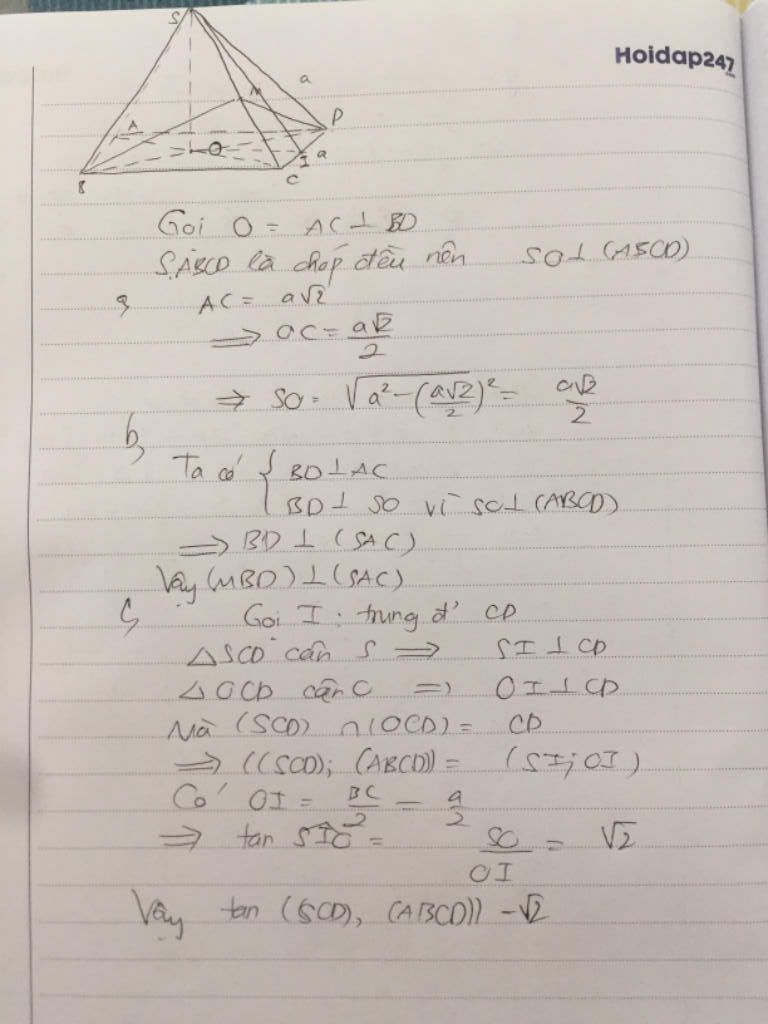 Hoidap247
.com
S
a
M
A
D
O
I
a
B
C
Gọi O = AC ⊥ BD
S.ABCD là chóp đều nên SO ⊥ (ABCD)
a, AC = a√2
⟹ OC = a√2/2
⟹ SO = √(a² − (a√2/2)²) = a√2/2
b,
Ta có { BD ⊥ AC
BD ⊥ SO vì SO ⊥ (ABCD)
⟹ BD ⊥ (SAC)
Vậy (MBD) ⊥ (SAC)
c, Gọi I : trung đ' CD
△SCD cân S ⟹ SI ⊥ CD
△OCD cân O ⟹ OI ⊥ CD
Mà (SCD) ∩ (OCD) = CD
⟹ ((SCD); (ABCD)) = (SI; OI)
Có OI = BC/2 = a/2
⟹ tan SIO = SO/OI = √2
Vậy tan (SCD), (ABCD)) = √2